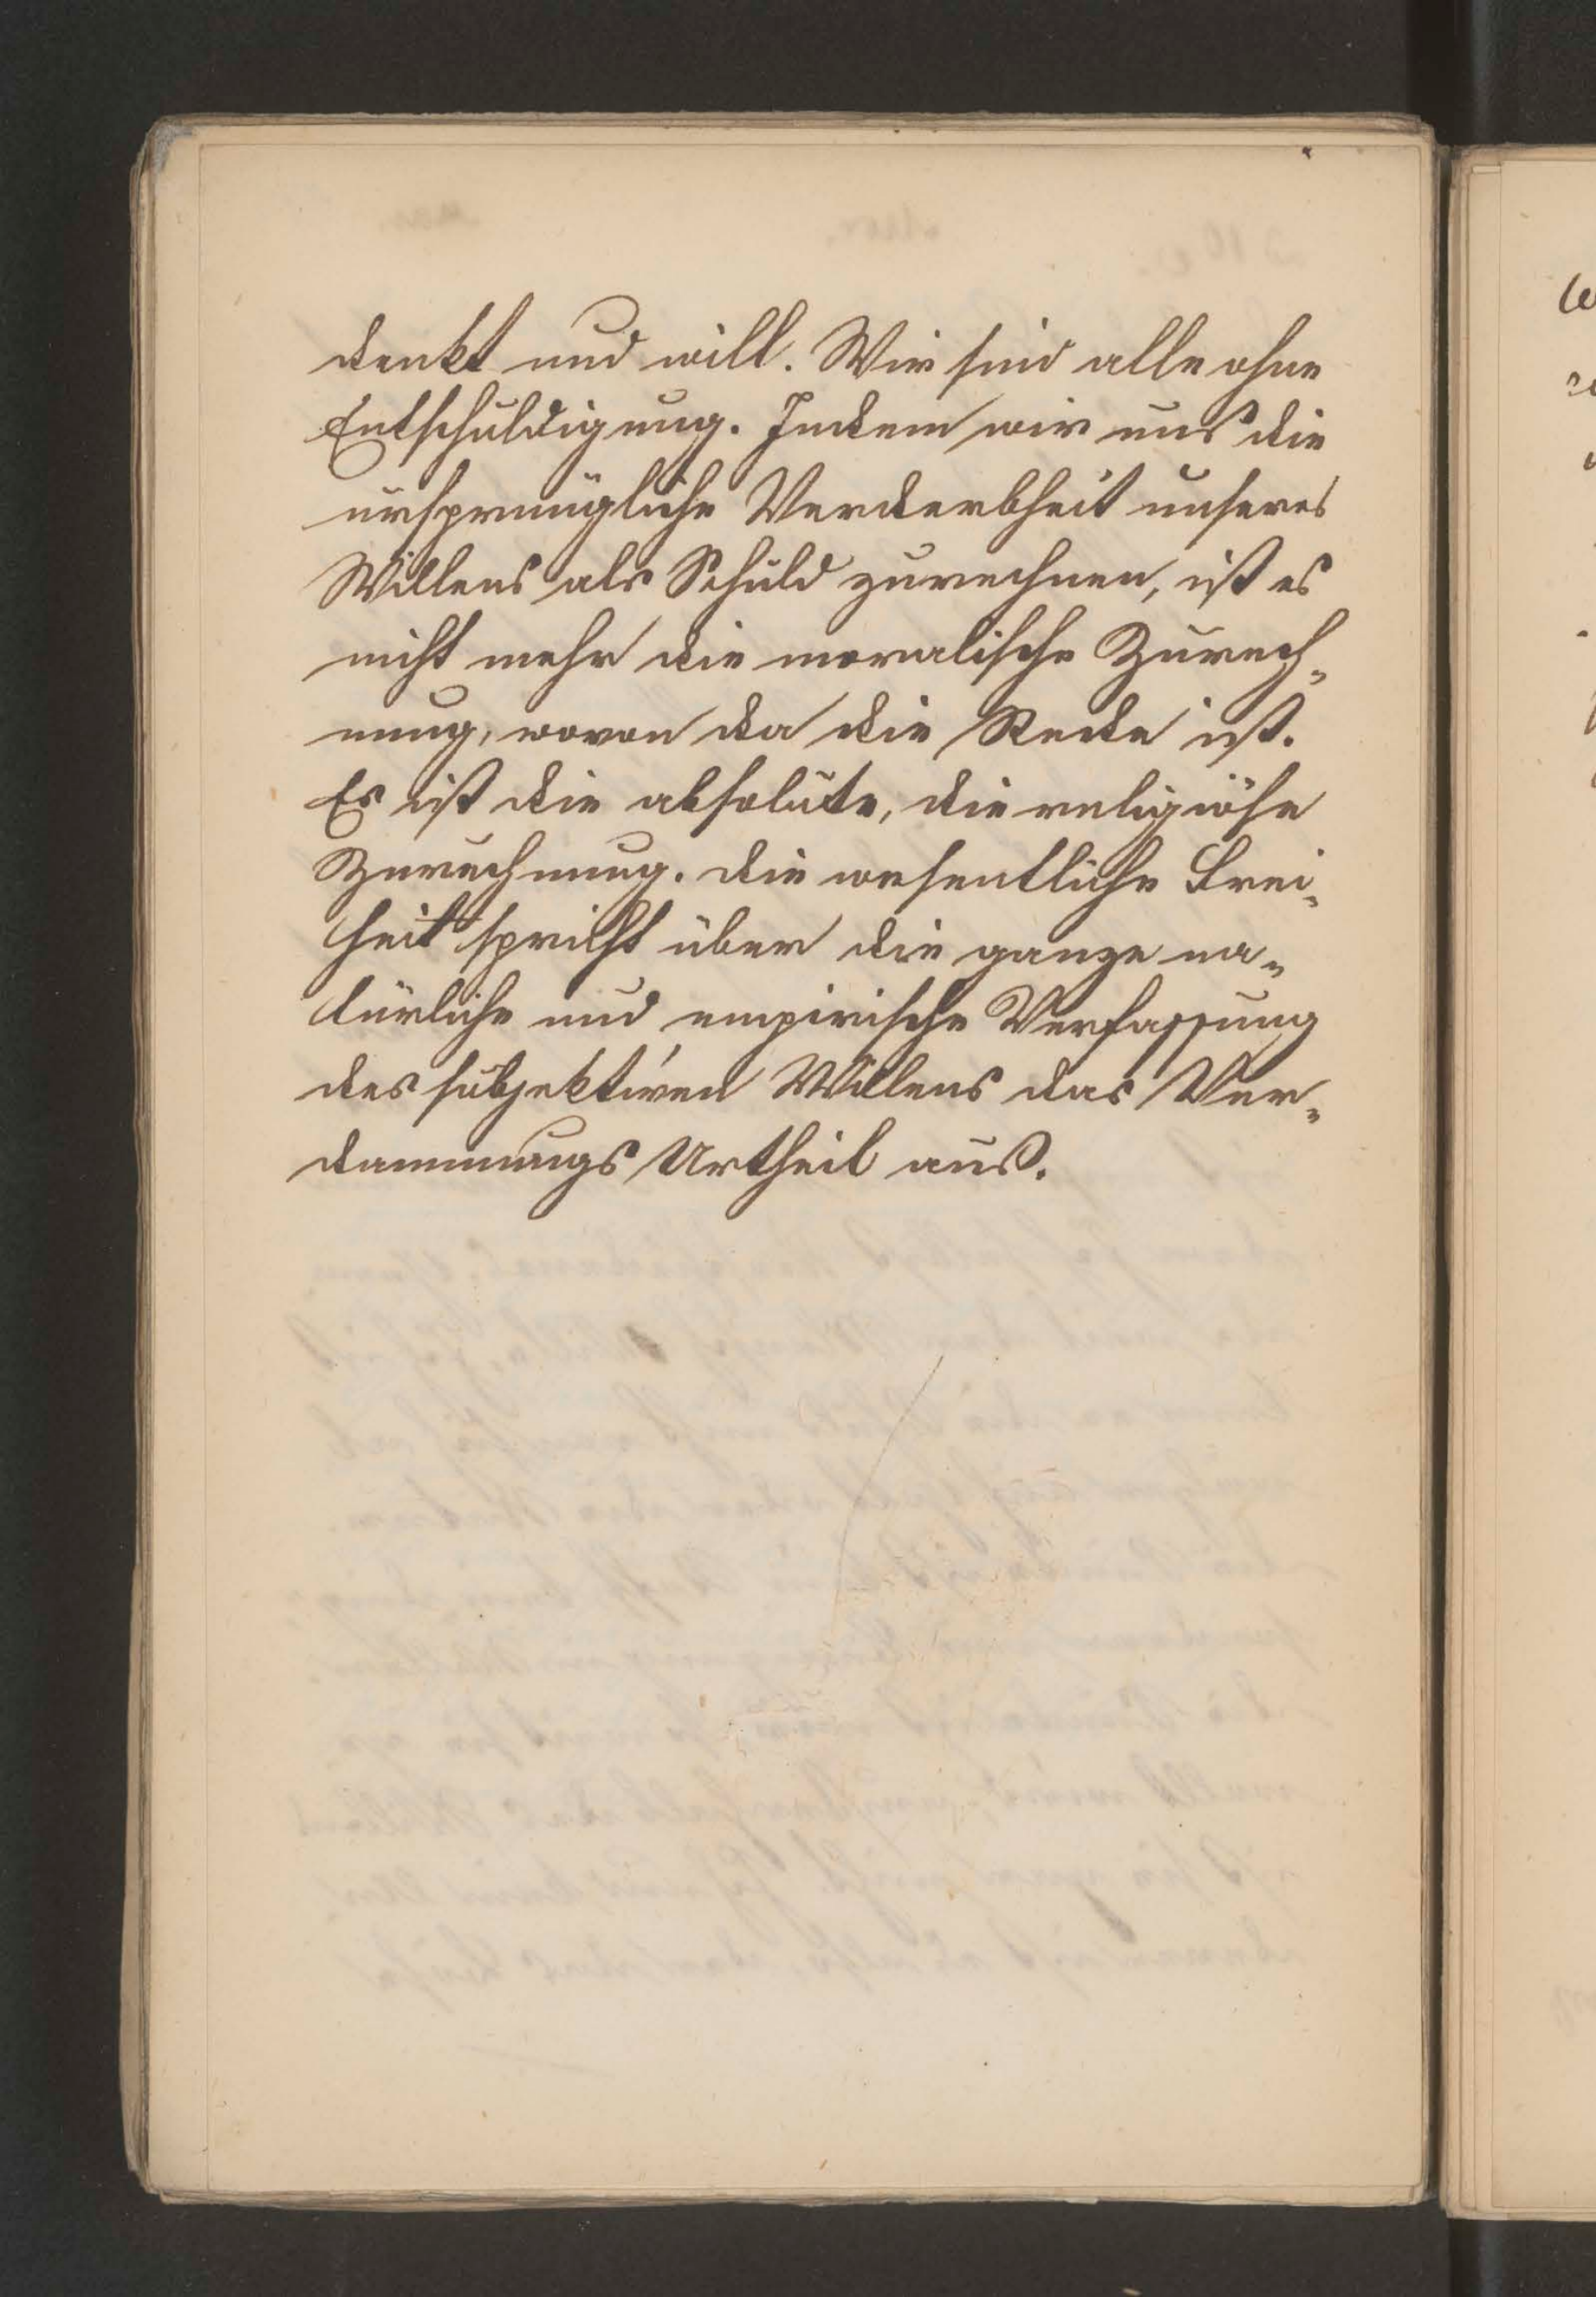 denkt und will. Wir sind alle ohne
Entschuldigung. Indem wir uns die
ursprüngliche Verderbheit unseres
Willens als Schuld zurechnen, ist es
nicht mehr die moralische Zurech-
nung, wovon da die Rede ist.
Es ist die absolute, die religiöse
Zurechnung. Die wesentliche Frei-
heit spricht über die ganze na-
türliche und empirische Verfassung
des subjektiven Willens das Ver-
dammungs Urtheil aus.